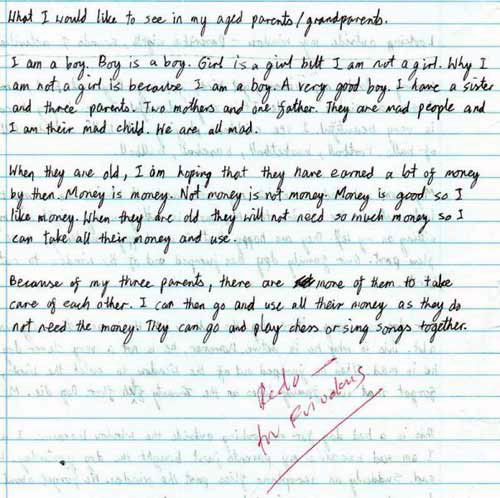 What I would like to see in my aged parents/grandparents.
I am a boy. Boy is a boy. Girl is a girl but I am not a girl. Why I
am not a girl is because I am a boy. A very good boy. I have a sister
and three parents. Two mothers and one father. They are mad people and
I am their mad child. We are all mad.
When they are old, I am hoping that they have earned a lot of money
by then. Money is money. Not money is not money. Money is good so I
like money. When they are old they will not need so much money so I
can take all their money and use.
Because of my three parents, there are more of them to take
care of each other. I can then go and use all their money as they do
not need the money. They can go and play chess or sing songs together.
Redo –
too frivolous